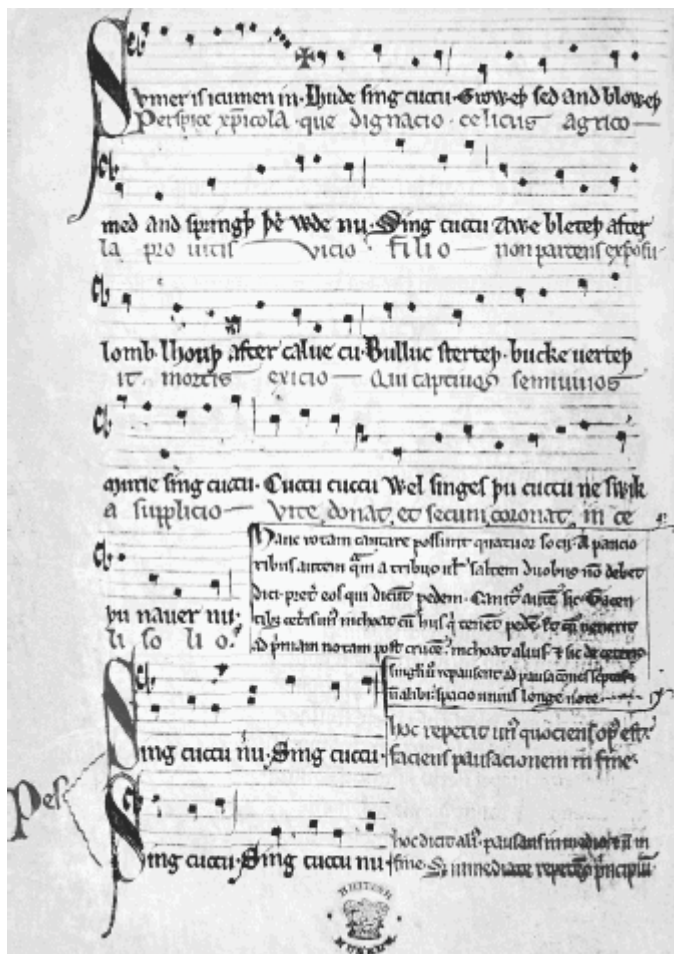 Svmer is icumen in· Lhude sing cuccu· Groweþ sed and bloweþ
Perspice xp̄icola· que dignacio celicus agrico
med and springþ þe wde nu· Sing cuccu Awe bleteþ after
la pro uitis vicio filio non parcens exposu
lomb lhouþ after calue cu· Bulluc sterteþ· bucke uerteþ
it mortis exicio Qui captiuos semiuiuos
murie sing cuccu· Cuccu cuccu Wel singes þu cuccu ne swik
a supplicio Vite donat et secum coronat in ce
þu nauer nu·
li so li o·
Hanc rotam cantare possunt quatuor socii· A paucio
ribus autem quam a tribus uel saltem duobus non debet
dici· preter eos qui dicunt pedem· Canitur autem sic· Tacen
tibus ceteris unus inchoat cum hiis qui tenent pedem· Et cum uenerit
ad primam notam post crucem· inchoat alius· et sic de ceteris
singuli uero repausent ad pausaciones scriptas
non alibi· spacio unius longe note
Pes
Sing cuccu nu· Sing cuccu·
hoc repetit unus quociens opus est·
faciens pausacionem in fine·
Sing cuccu· Sing cuccu nu
hoc dicit alius· pausans in medio et non in
fine· Sed immediate repetens principium
BRITISH
MUSEUM